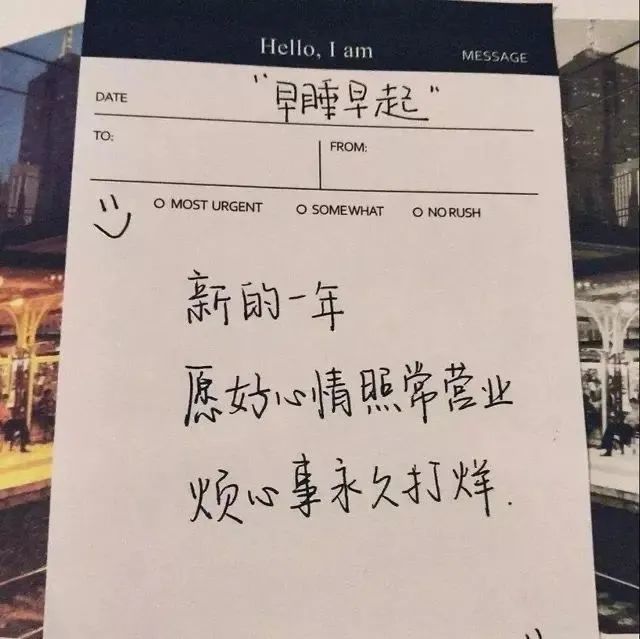 Hello, I am
MESSAGE
DATE
"早睡早起"
TO:
FROM:
MOST URGENT
SOMEWHAT
NO RUSH
新的一年
愿好心情照常营业
烦心事永久打烊.